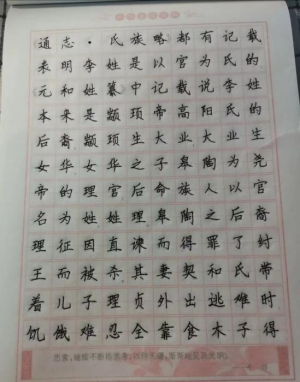 通志·氏族略都有记载
来明李姓是以官为氏的
元和姓纂中记载说李姓
本来是颛顼帝高阳氏的
后裔颛顼生大业大业生
女华女华之子皋陶为尧
帝的理官后命族人以官
名为姓姓理皋陶之后裔
理征因直谏而得罪了纣
王而被杀其妻契和氏带
着儿子理贞外出逃难时
饥饿难忍全靠食木子得